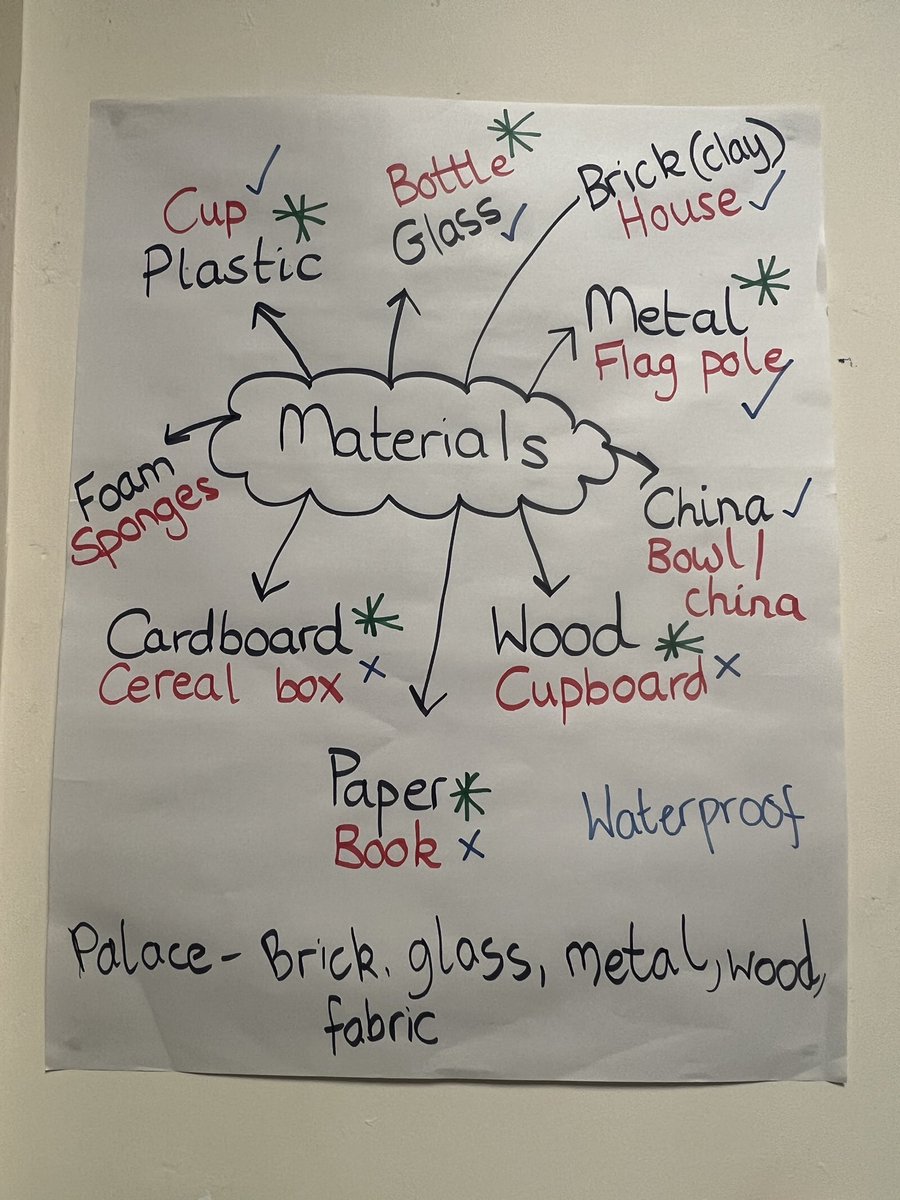 Cup
Plastic
Bottle
Glass
Brick (clay)
House
Metal
Flag pole
Materials
Foam
Sponges
China
Bowl /
china
Cardboard
Cereal box
Wood
Cupboard
Paper
Book
Waterproof
Palace - Brick. glass, metal, wood,
fabric